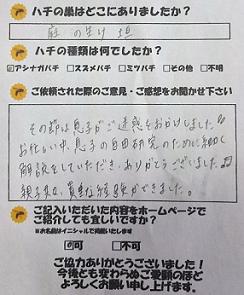 ハチの巣はどこにありましたか?
庭の生け垣
ハチの種類は何でしたか?
☑アシナガバチ □スズメバチ □ミツバチ □その他 □不明
ご依頼された際のご意見・ご感想をお聞かせ下さい
その節は息子がご迷惑をおかけしました。
お忙しい中、息子の自由研究のために細かく
解説をしていただき、ありがとうございました♫
親子共々、貴重な経験ができました。
ご記入いただいた内容をホームページで
ご紹介しても宜しいですか?
※お名前はイニシャルで掲載いたします
☑可 □不可
ご協力ありがとうございました!
今後とも変わらぬご愛顧のほど
よろしくお願い申し上げます。